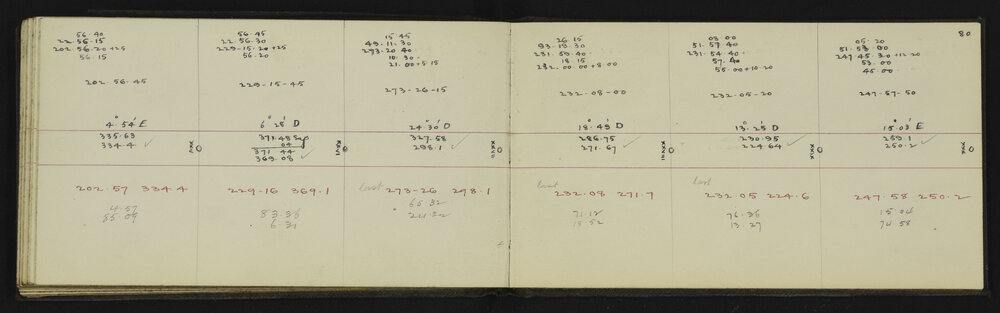 56.40
22.56.15
202.56.20+25
56.15
202.56.45
4° 54' E
335.63
334.4
202.57 334.4
4.57
85.09
56.45
22.56.30
229-15.20+25
56.20
229-15-45
6° 25' D
371.48
.04
371.44
369.08
229-16 369.1
83.36
6.21
15.45
49.11.30
293.20.40
10.30
21.00+5.15
273-26-15
24° 30' D
327.58
298.1
last 273-26 298.1
65.32
24.22
26.15
93.19.30
231.59.40
18.15
282.00.00+8.00
232-08-00
18° 49' D
286.75
271.67
last
232.08 271.7
71.12
18.52
03.00
51.57.40
231.54.40
57.40
55.00+10.20
232-05-20
13° 25' D
230.95
224.64
last
232.05 224.6
76.36
13.27
80
05.20
51.53.00
247.45.30+12.20
53.00
45.00
247-57-50
15° 03' E
259.1
250.2
XXX
247.58 250.2
15.04
74.58